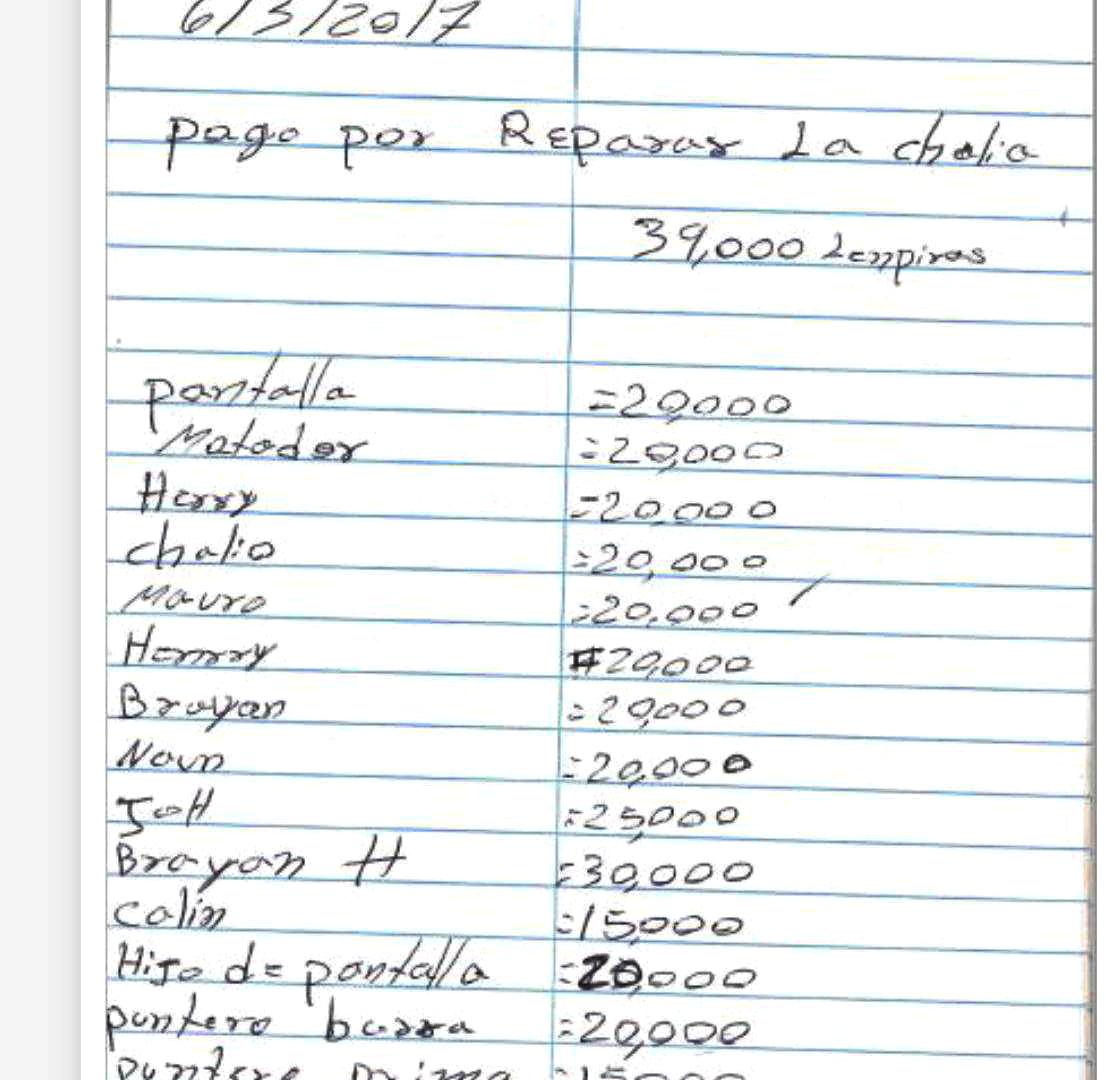 6/3/2017
pago por REparar La chalia
39,000 Lempiras
pantalla =20,000
Matador =20,000
Herry =20,000
chalio =20,000
Mauro =20,000
Henrry =20,000
Brayan =20,000
Noun =20,000
JoH =25,000
Brayan H =30,000
calin =15,000
HiJo de pantalla =20,000
puntero barra =20,000
puntero prima =15,000